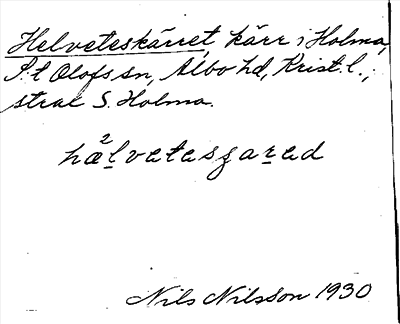 Helveteskärret, kärr i Holma,
S:t Olofs sn, Albo hd, Krist. l.,
strax S. Holma.
2
hælvetesʒarad
Nils Nilsson 1930